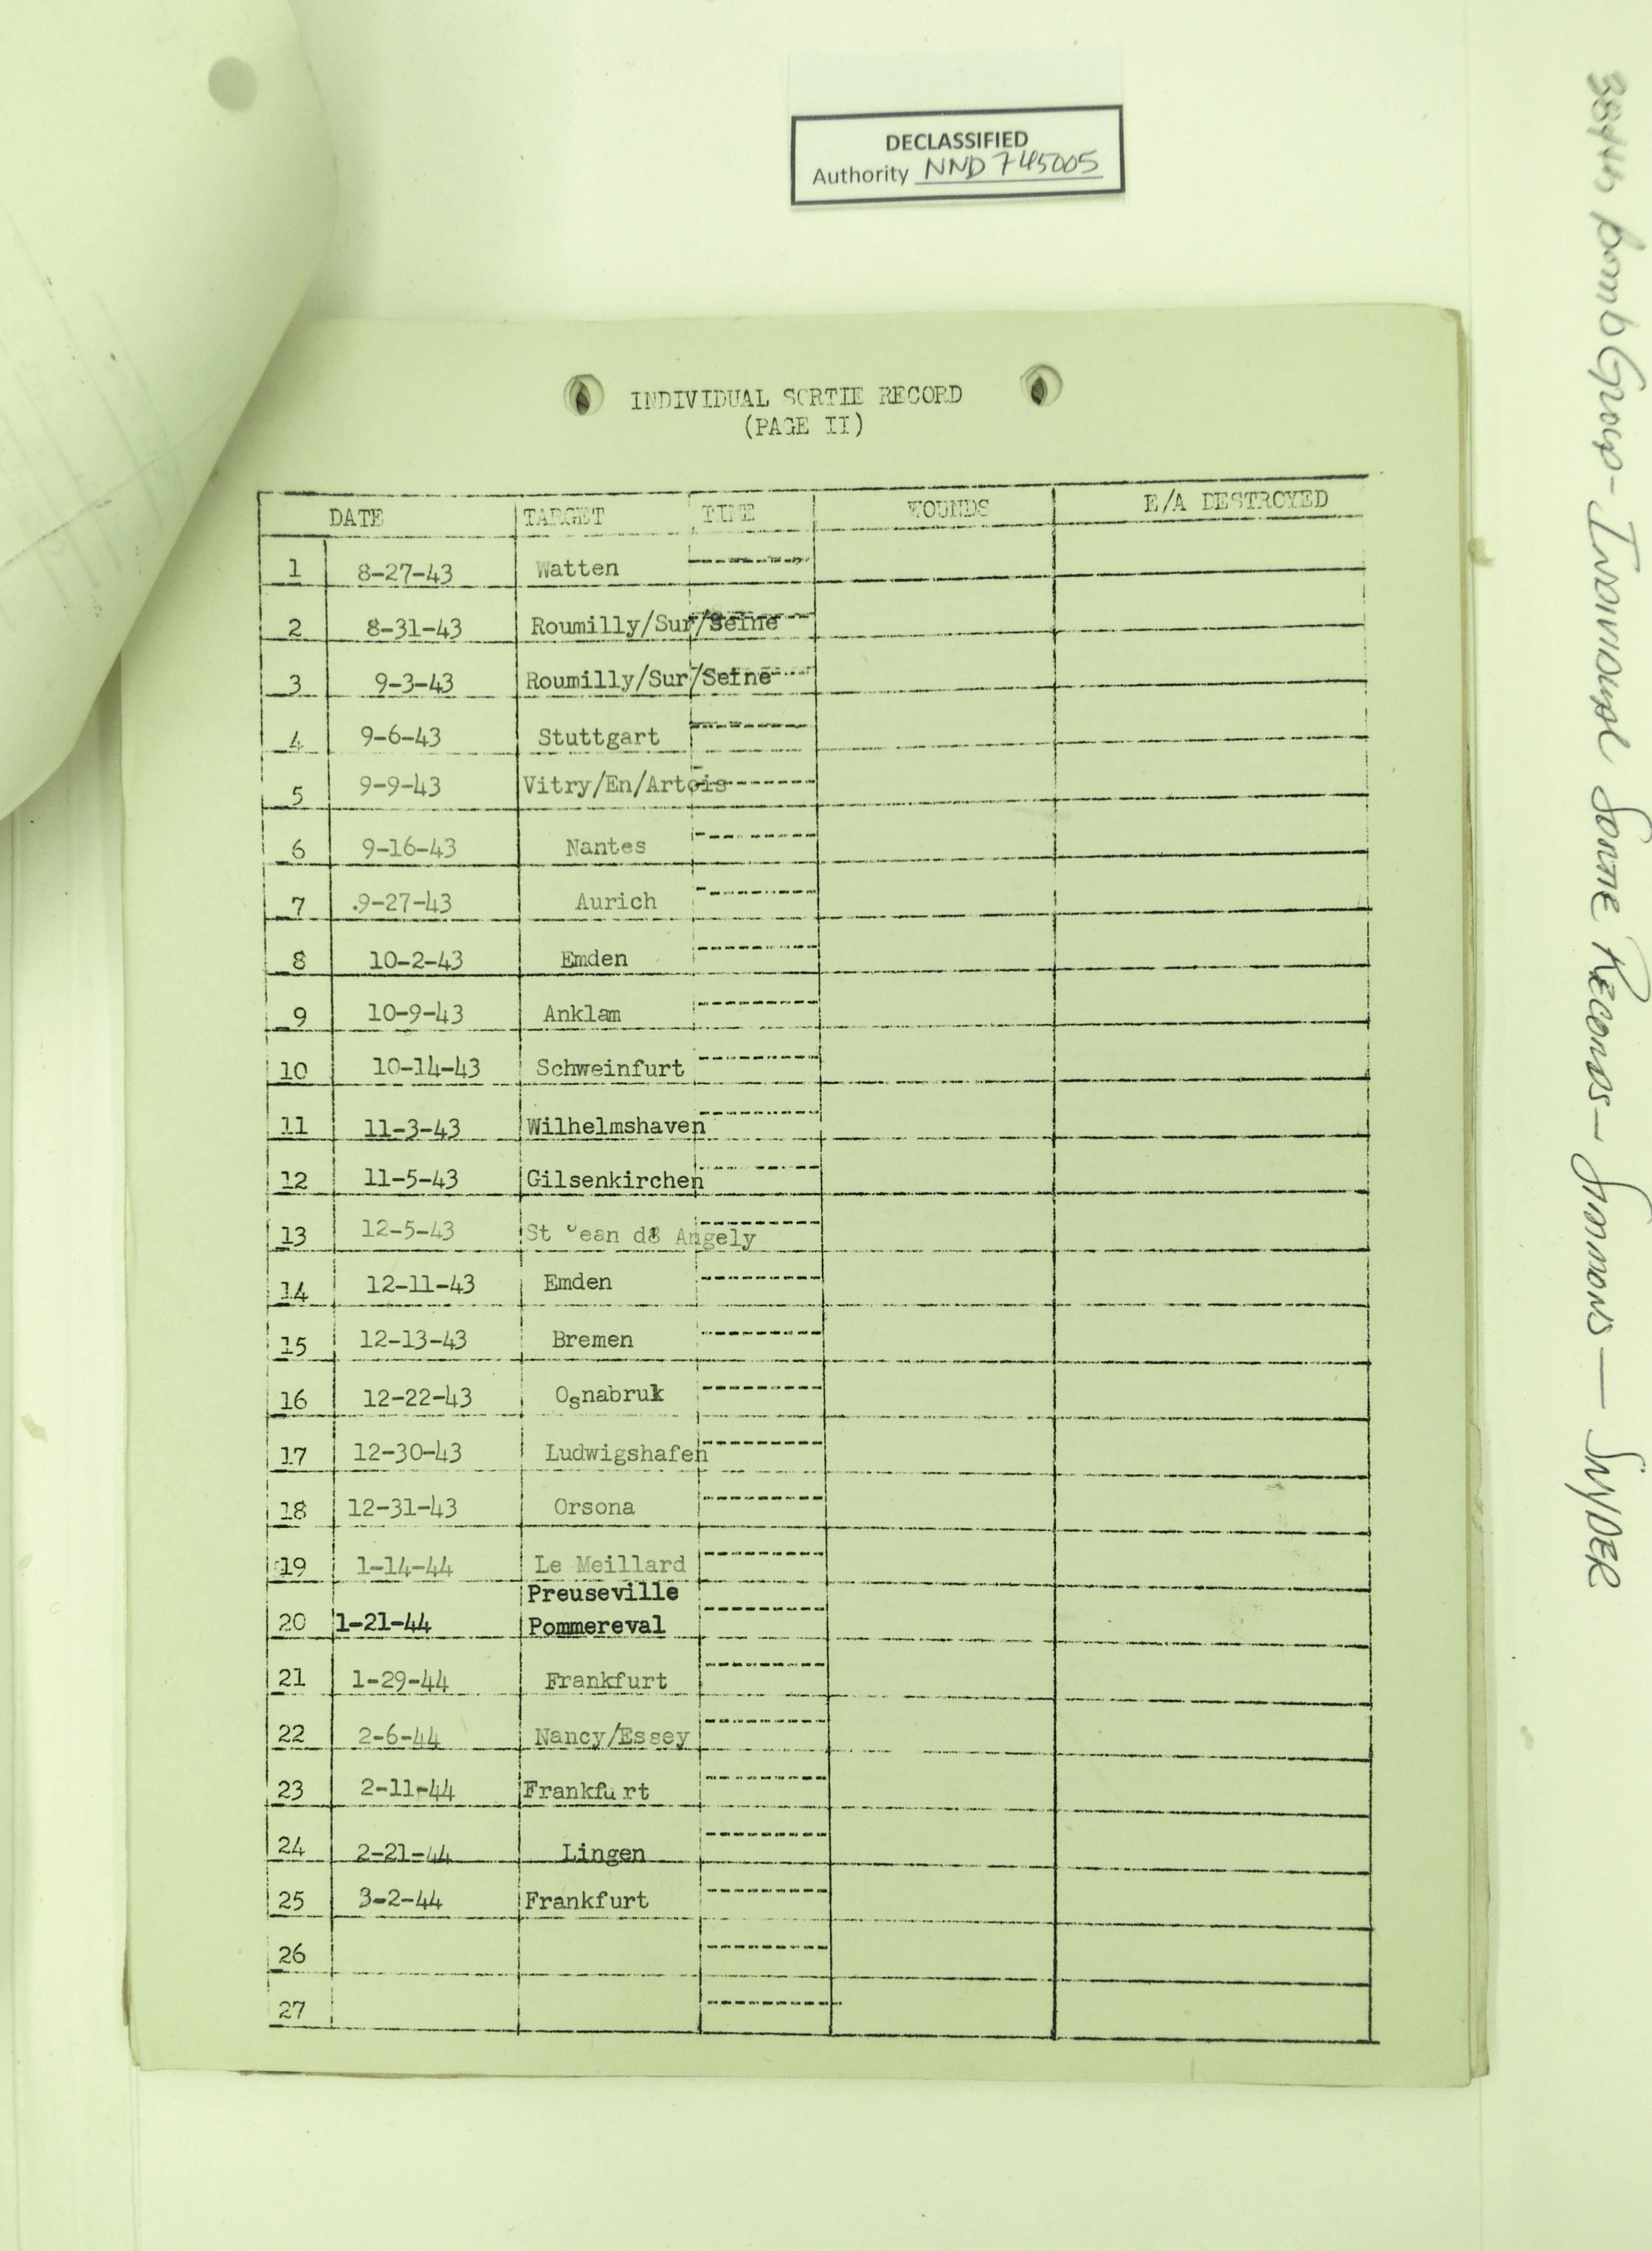 DECLASSIFIED
Authority NND 745005
INDIVIDUAL SORTIE RECORD
(PAGE II)
DATE TARGET TIME WOUNDS E/A DESTROYED
1 8-27-43 Watten
2 8-31-43 Roumilly/Sur/Seine
3 9-3-43 Roumilly/Sur/Seine
4 9-6-43 Stuttgart
5 9-9-43 Vitry/En/Artois
6 9-16-43 Nantes
7 .9-27-43 Aurich
8 10-2-43 Emden
9 10-9-43 Anklam
10 10-14-43 Schweinfurt
11 11-3-43 Wilhelmshaven
12 11-5-43 Gilsenkirchen
13 12-5-43 St Jean de Angely
14 12-11-43 Emden
15 12-13-43 Bremen
16 12-22-43 Osnabruk
17 12-30-43 Ludwigshafen
18 12-31-43 Orsona
19 1-14-44 Le Meillard
Preuseville
20 1-21-44 Pommereval
21 1-29-44 Frankfurt
22 2-6-44 Nancy/Essey
23 2-11-44 Frankfurt
24 2-21-44 Lingen
25 3-2-44 Frankfurt
26
27
384th Bomb Group - Individual Sortie Records - Simmons - Snyder